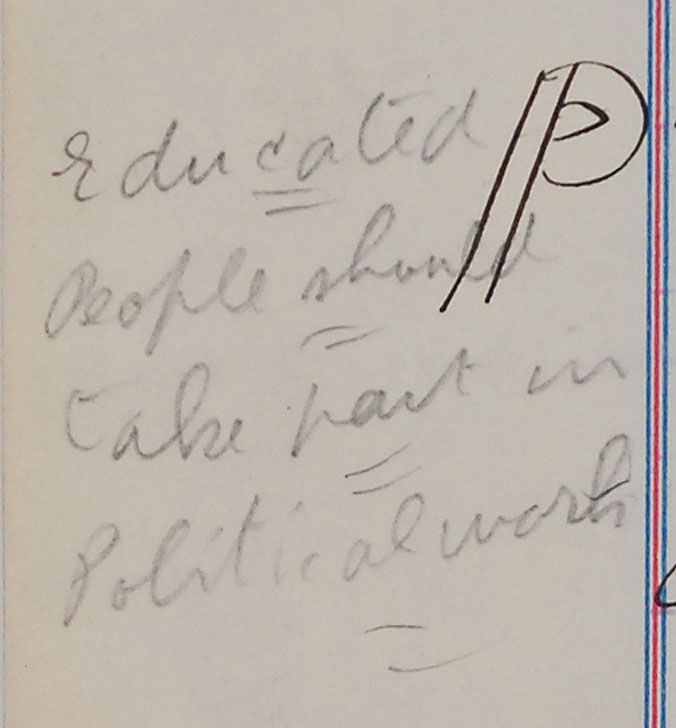 Educated
People should
take part in
Political work
P